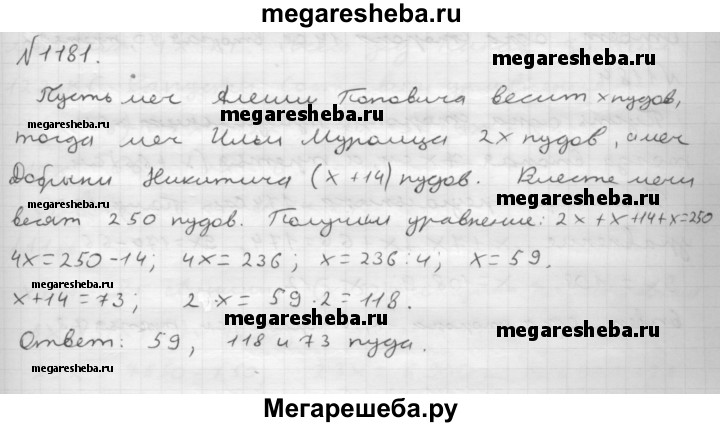 megaresheba.ru
№1181.
megaresheba.ru
Пусть меч Алеши Поповича весит x пудов,
megaresheba.ru
megaresheba.ru
тогда меч Ильи Муромца 2x пудов, а меч
Добрыни Никитича (x+14) пудов. Вместе мечи
megaresheba.ru
весят 250 пудов. Получим уравнение: 2x+x+14+x=250
4x=250-14; 4x=236; x=236:4; x=59.
x+14=73; 2·x=59·2=118.
megaresheba.ru
megaresheba.ru
Ответ: 59, 118 и 73 пуда.
megaresheba.ru
Мегарешеба.ру